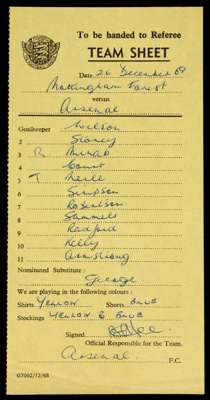 To be handed to Referee
TEAM SHEET
Date 26 December 68
Nottingham Forest
versus
Arsenal
Goalkeeper Wilson
2 Storey
3 R McNab
4 Court
5 T Neill
6 Simpson
7 Robertson
8 Sammels
9 Radford
10 Kelly
11 Armstrong
Nominated Substitute :
George
We are playing in the following colours :
Shirts YELLOW Shorts BLUE
Stockings YELLOW & BLUE
Signed
Official Responsible for the Team.
Arsenal F.C.
G7002/12/68